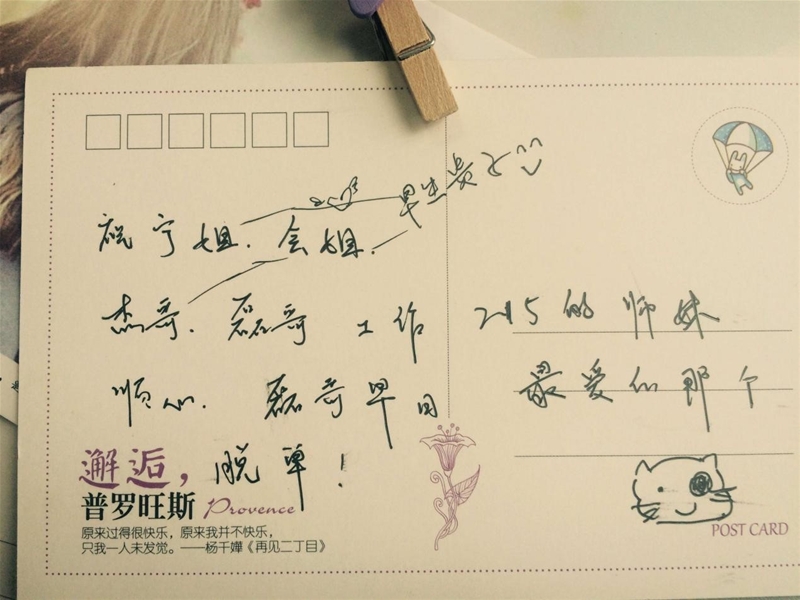 早生贵子
祝宁姐、会姐、
杰哥、磊哥 工作
顺心. 磊哥早日
脱单!
215的师妹
最爱你那个
邂逅,
普罗旺斯 Provence
原来过得很快乐,原来我并不快乐,
只我一人未发觉。——杨千嬅《再见二丁目》
POST CARD